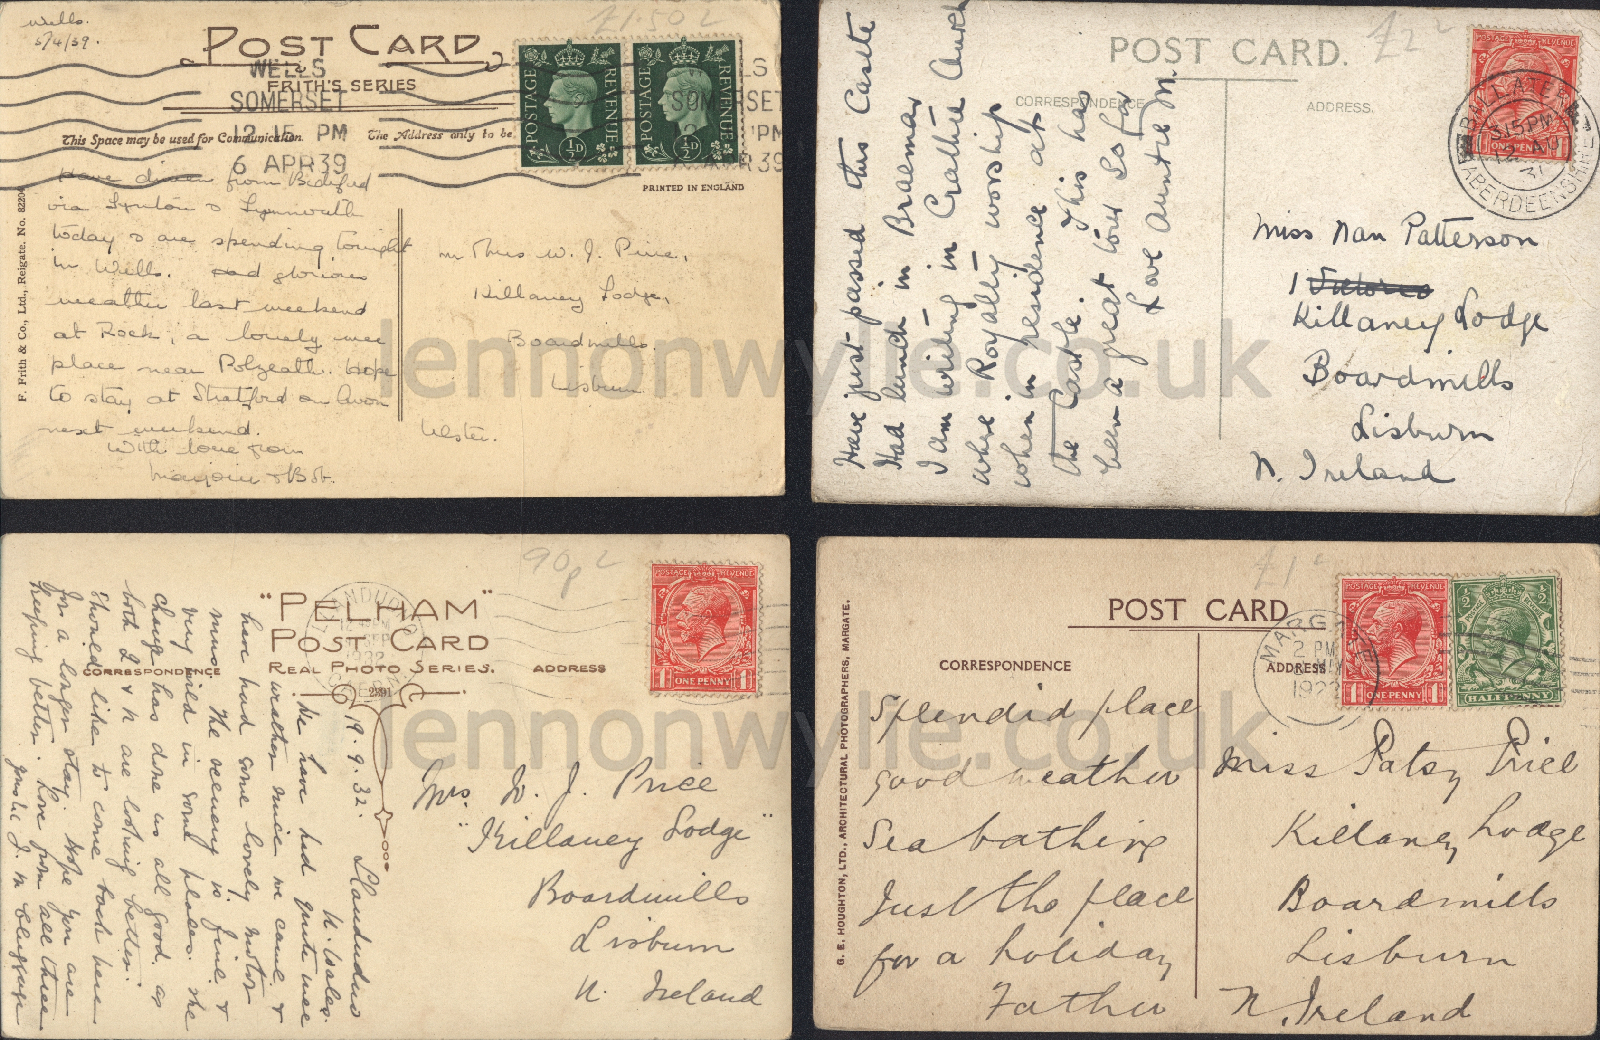 Wells.
5/4/39.
£1.50
POST CARD
FRITH'S SERIES
WELLS
SOMERSET
12 15 PM
6 APR 39
This Space may be used for Communication.
The Address only to be
POSTAGE REVENUE
½D
POSTAGE REVENUE
½D
PRINTED IN ENGLAND
F. Frith & Co., Ltd., Reigate. No. 8220
Have driven from Bideford
via Lynton & Lynmouth
today & are spending tonight
in Wells. Had glorious
weather last weekend
at Rock, a lovely wee
place near Polzeath. Hope
to stay at Stratford on Avon
next weekend.
With love from
W. J.
Killaney Lodge,
Boardmills.
Lisburn
Ulster.
£2
POST CARD.
CORRESPONDENCE
ADDRESS.
POSTAGE REVENUE
ONE PENNY
BALLATER
3 15 PM
12 AU
31
ABERDEENSHIRE
Have just passed this Castle
Had lunch in Braemar
I am writing in Crathie Church
where Royalty worship
when in residence at
the Castle. This has
been a great tour so far
Love Auntie M.
Miss Nan Patterson
1
Killaney Lodge
Boardmills
Lisburn
N. Ireland
90p
"PELHAM"
POST CARD
REAL PHOTO SERIES.
CORRESPONDENCE
ADDRESS
POSTAGE REVENUE
ONE PENNY
LLANDUDNO
19.9.32. Llandudno
N. Wales.
We have had quite nice
weather since we came &
have had some lovely motor
runs. The scenery is fine &
very wild in some places. The
change has done us all good, as
both L & N are looking better.
Should like to come back here
for a longer stay. Hope you are
keeping better. Love from all three
Mrs. W. J. Price
"Killaney Lodge"
Boardmills
Lisburn
N. Ireland
£1
POST CARD
CORRESPONDENCE
ADDRESS
MARGATE
2 PM
POSTAGE REVENUE
ONE PENNY
½ ½
HALFPENNY
G. E. HOUGHTON, LTD., ARCHITECTURAL PHOTOGRAPHERS, MARGATE.
Splendid place
good weather
Sea bathing
Just the place
for a holiday
Father
Miss Patsy Price
Killaney Lodge
Boardmills
Lisburn
N. Ireland
lennonwylie.co.uk
lennonwylie.co.uk